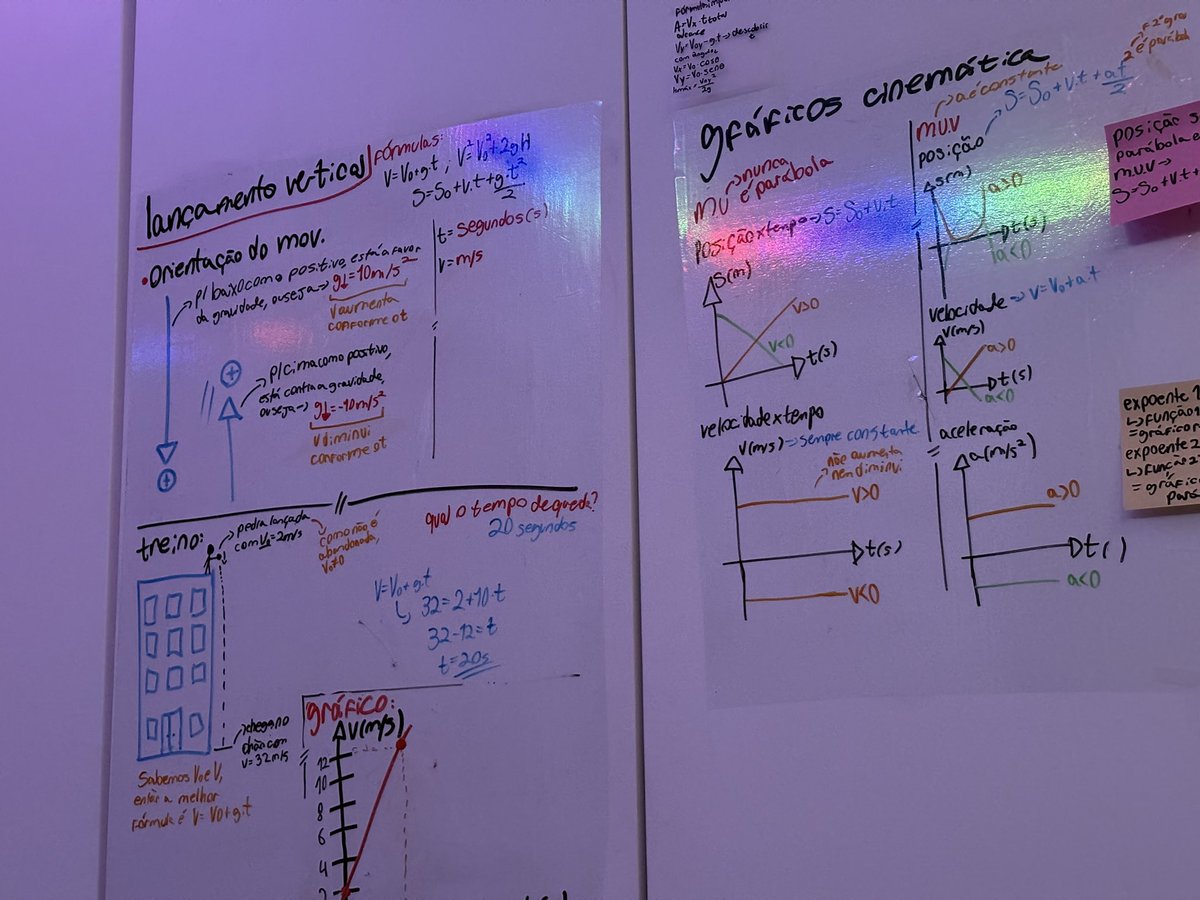 lançamento vertical
fórmulas:
V=V₀+g.t ; V²=V₀²+2gH
S=S₀+V.t+g.t²/2
•Orientação do mov.
p/ baixo como positivo, está a favor
da gravidade, ou seja→ g↓=10m/s²
V aumenta
conforme ot
t=segundos(s)
v=m/s
p/ cima como positivo,
está contra a gravidade,
ou seja→ g↓=-10m/s²
V diminui
conforme ot
treino:
pedra lançada
com V₀=2m/s
como não é
abandonada,
V₀≠0
qual o tempo de queda?
20 segundos
V=V₀+g.t
32=2+10.t
32-12=t
t=20s
chega no
chão com
v=32m/s
Sabemos V₀ e V,
então a melhor
fórmula é V=V₀+g.t
gráfico:
V(m/s)
12
10
8
6
4
2
A=Vx.t total
alcance
Vy=Voy-g.t→
com ângulo
Vx=V₀.cosθ
Vy=V₀.senθ
hmáx=Voy²/2g
gráficos cinemática
MU →nunca
é parábola
posição x tempo→S=S₀+V.t
S(m)
V>0
V<0
t(s)
velocidade x tempo
V(m/s)→sempre constante
não aumenta
nem diminui
V>0
t(s)
V<0
M.U.V →a é constante
posição
S=S₀+V.t+a.t²/2
é parábola
S(m)
a>0
t(s)
a<0
velocidade→V=V₀+a.t
V(m/s)
a>0
t(s)
a<0
aceleração
a(m/s²)
a>0
t( )
a<0
posição s
parábola e
m.u.v→
S=S₀+V.t+
expoente 1
↳função 1
=gráfico r
expoente 2
↳função 2
=gráfic
pará